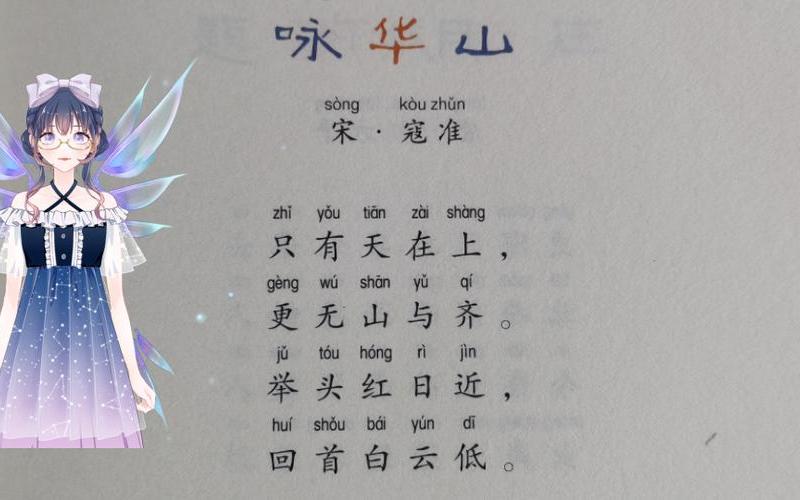 咏华山
sòng kòu zhǔn
宋·寇准
zhǐ yǒu tiān zài shàng
只有天在上，
gèng wú shān yǔ qí
更无山与齐。
jǔ tóu hóng rì jìn
举头红日近，
huí shǒu bái yún dī
回首白云低。